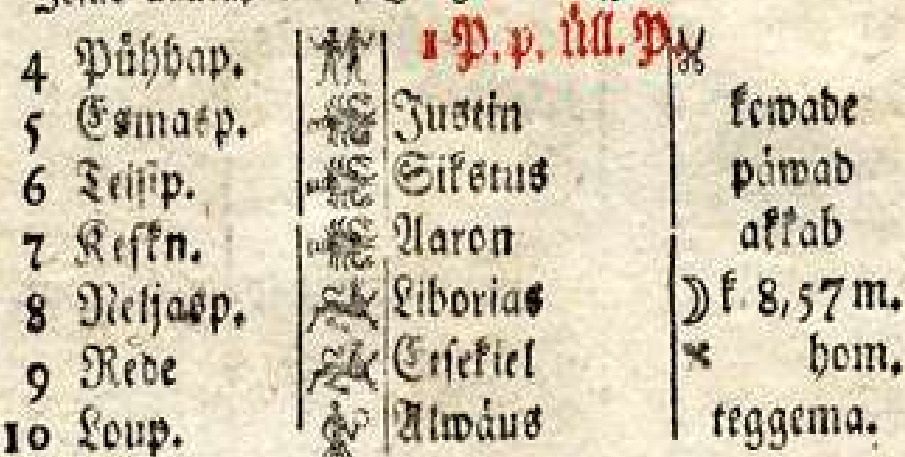 4 Pühhap. 1 P. p. Üll. P.
5 Esmasp. Justin kewade
6 Teisip. Sikstus päwad
7 Keskn. Aaron akkab
8 Neljasp. Liborias ☽ k. 8,57 m.
9 Rede Eesekiel hom.
10 Loup. Alwäus teggema.